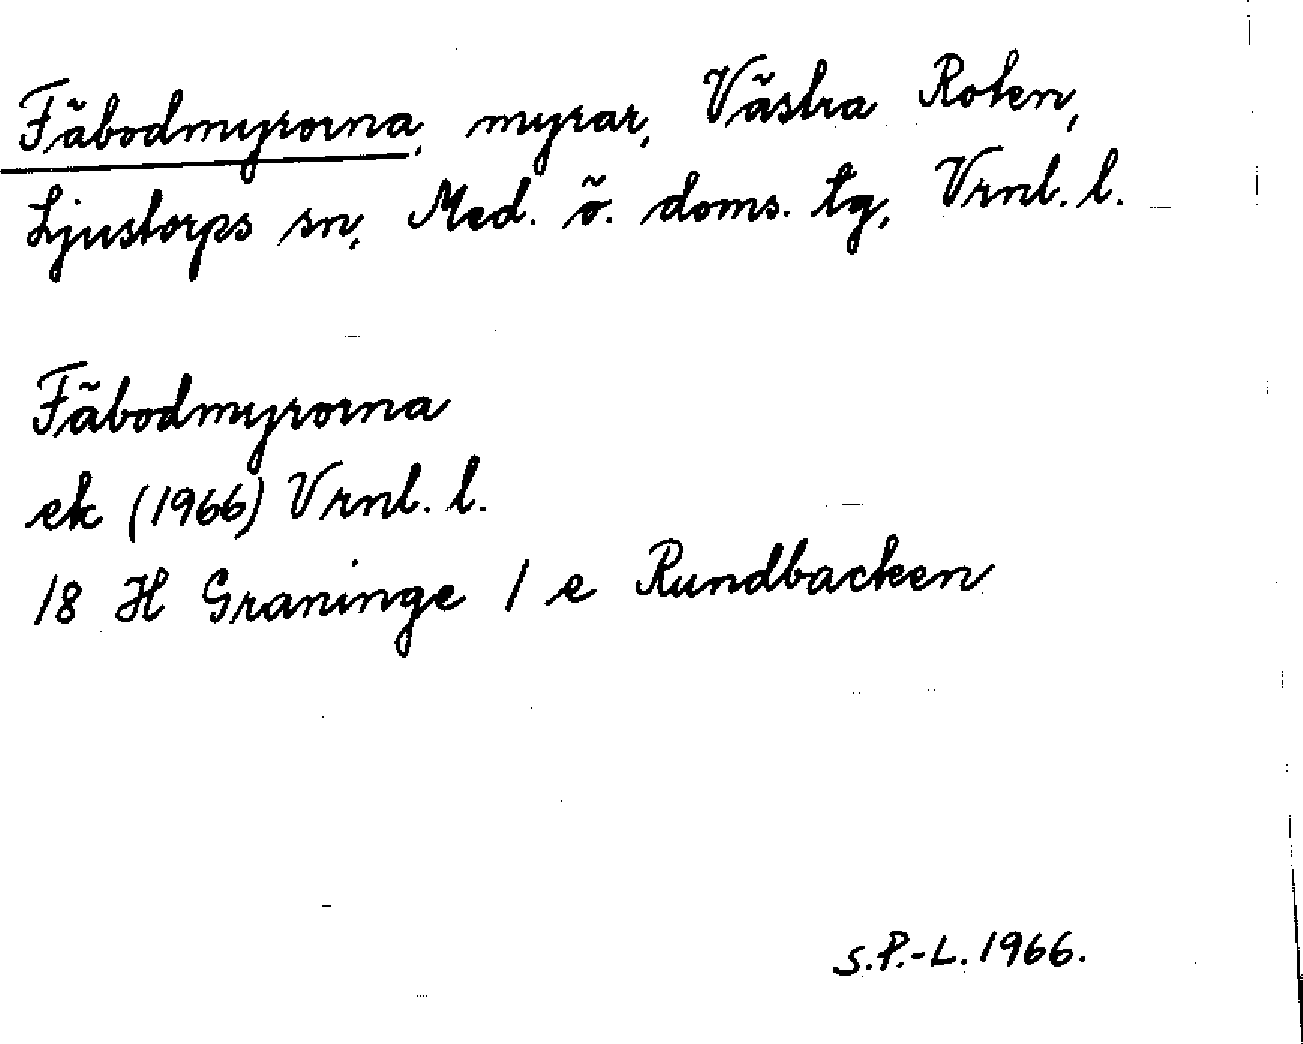 Fäbodmyrorna, myrar, Västra Roten,
Ljustorps sn, Med. ö. doms. tg, Vrnl. l.
Fäbodmyrorna
ek (1966) Vrnl. l.
18 H Graninge 1 e Rundbacken
S.P.-L. 1966.